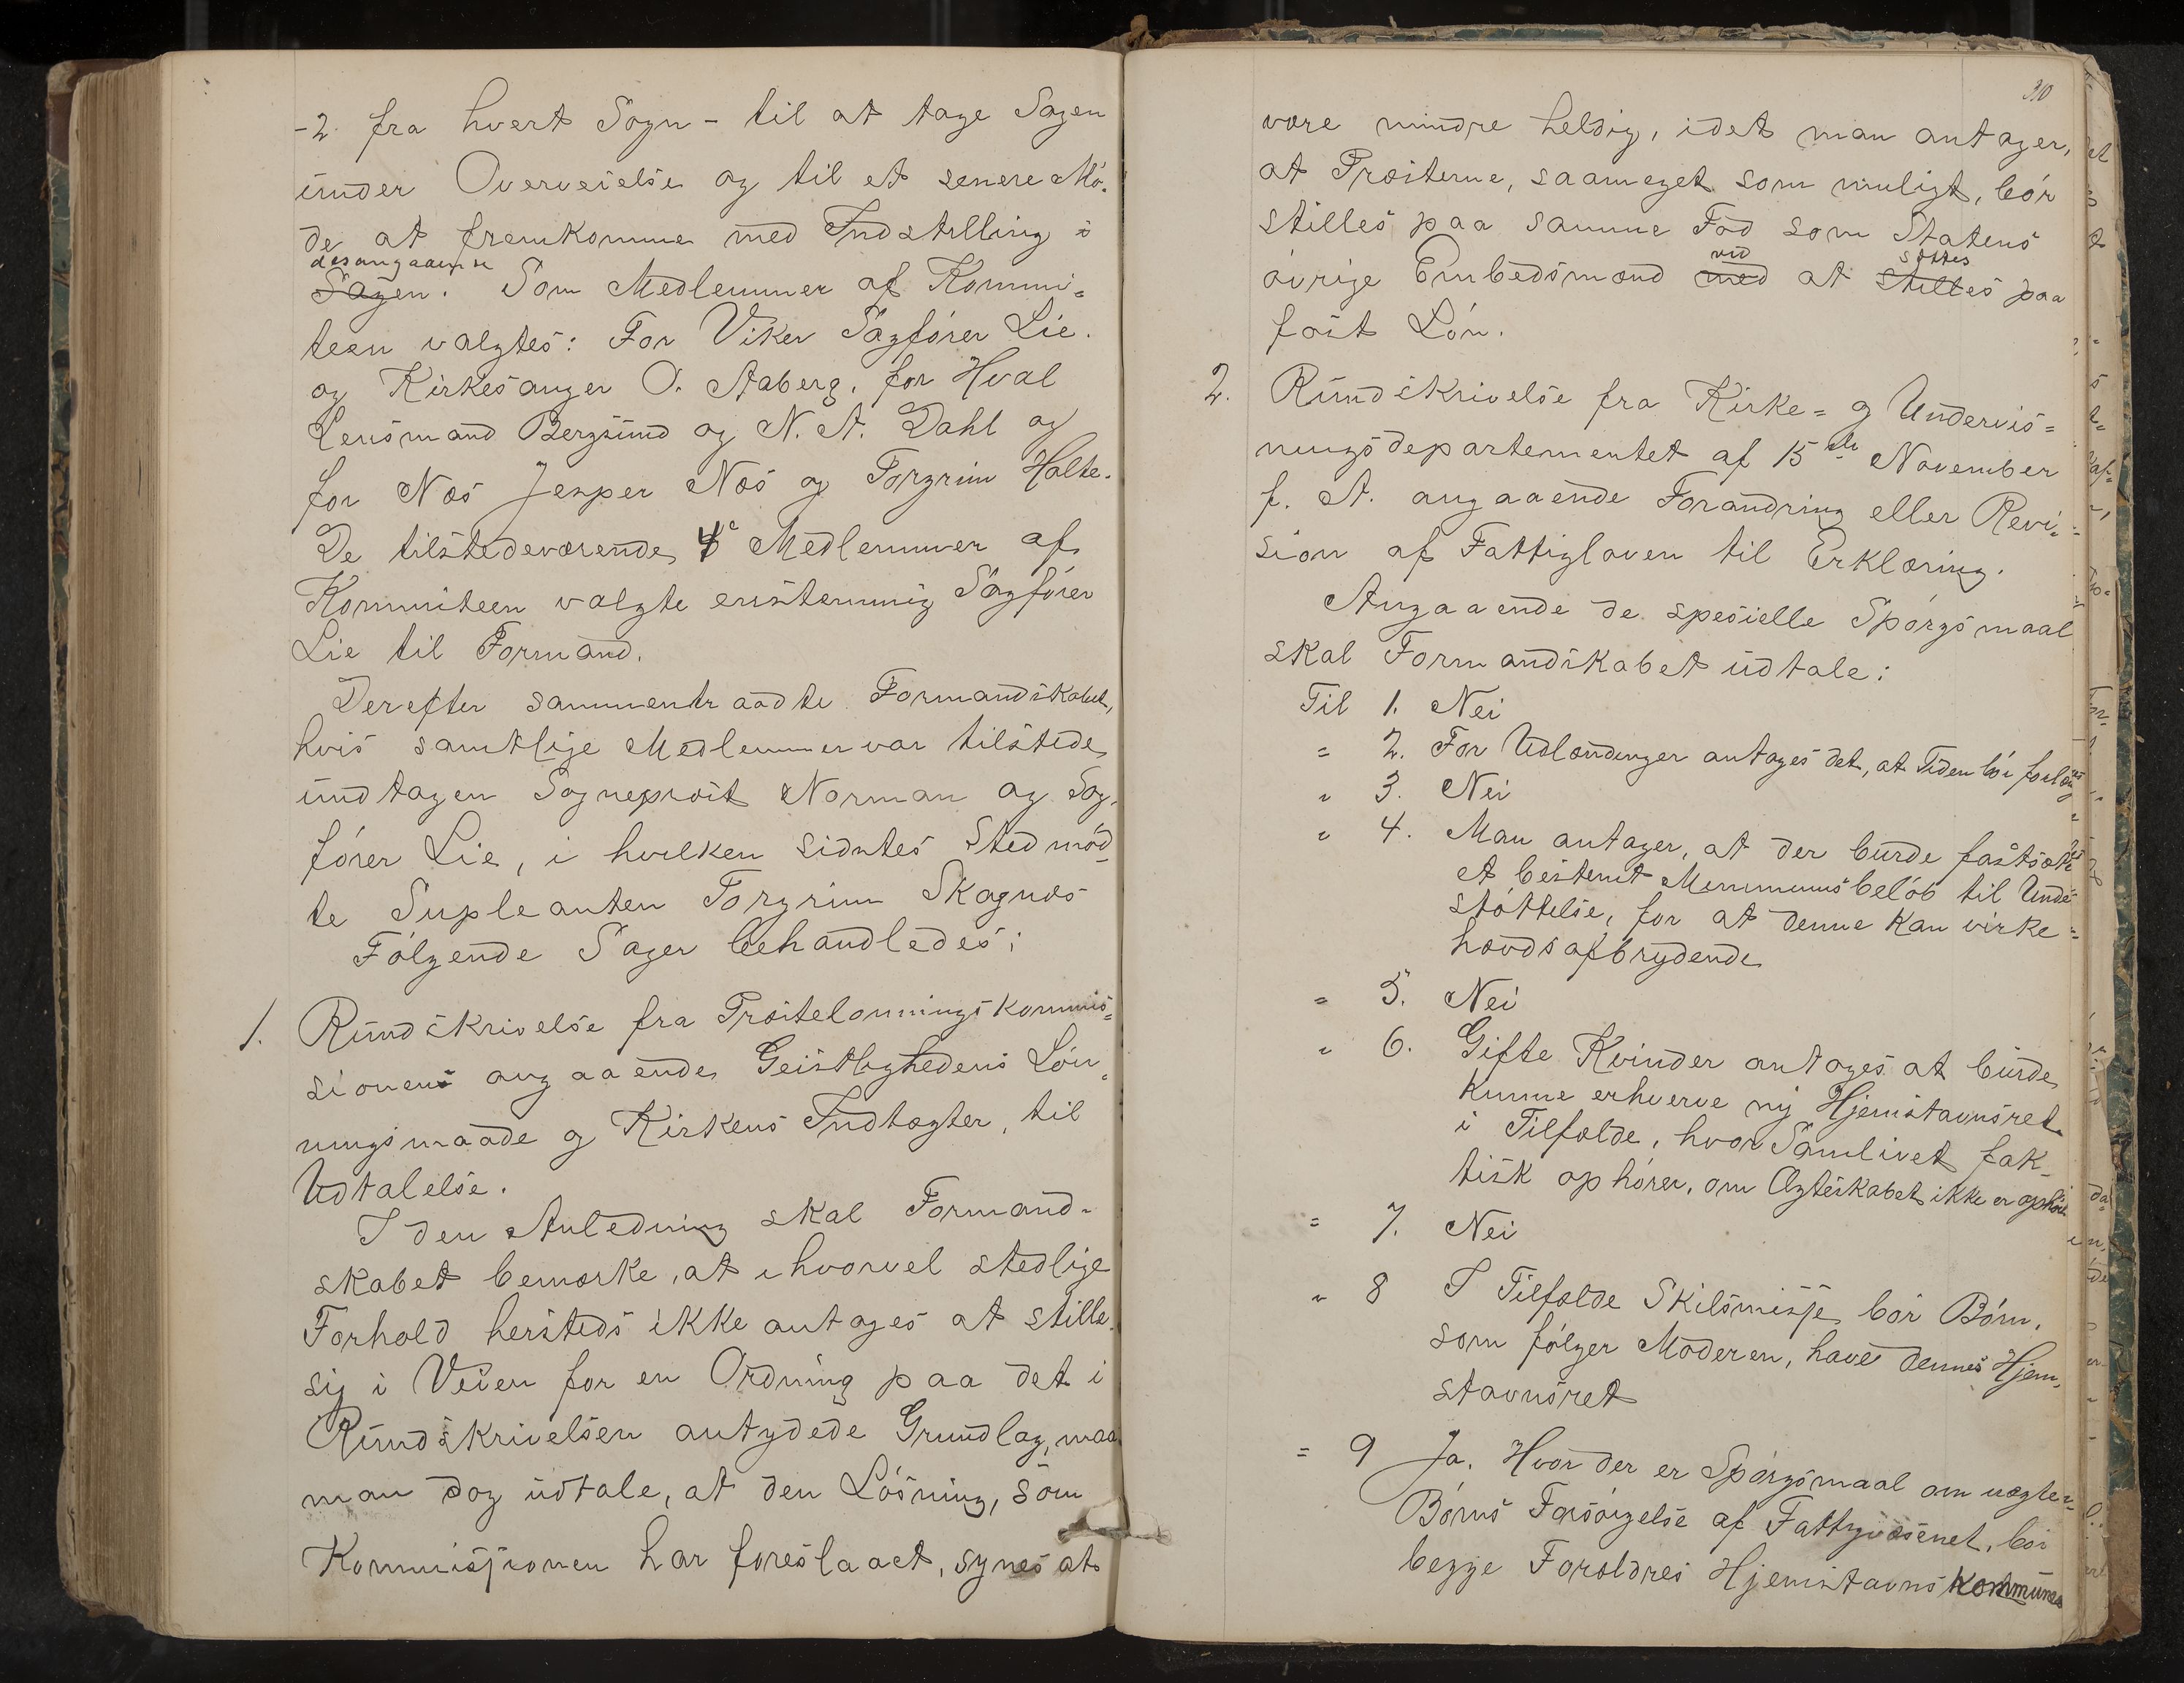 -2 fra hvert Sogn - til at tage Sagen
under Overveielse og til et senere Mö-
de at fremkomme med Indstilling i
desangaaende
Sagen. Som Medlemmer af Kommi=
teen valgtes: For Viker Sagförer Lie.
og Kirkesanger O. Aaberg. for Hval
Lensmand Bergsund og N. A. Dahl og
for Næs Jesper Næs og Torgrim Holte.
De tilstedeværende 4 Medlemmer af
Kommiteen valgte enstemmig Sagförer
Lie til Formand.
Derefter sammentraadte Formandskabet,
hvis samtlige Medlemmer var tilstede
undtagen Sogneprest Norman og Sag-
förer Lie, i hvilken sidstes Sted möd-
te Supleanten Torgrim Skagnæs
Fölgende Sager behandledes:
1. Rundskrivelse fra Præstelønningskommis=
sionens angaaende Geistlighedens Lön-
ningsmaade og Kirkens Indtægter, til
Udtalelse.
I den Anledning skal Formand-
skabet bemærke, at ihvorvel stedlige
Forhold hersteds ikke antages at stille
sig i Veien for en Ordning paa det i
Rundskrivelsen antydede Grundlag, maa
man dog udtale, at den Lösning, som
Kommissionen har foreslaaet, synes at
310
være mindre heldig, idet man antager,
at Præsterne, saameget som muligt, bör
stilles paa samme Fod som Statens
ved sættes
övrige Embedsmænd med at stilles paa
fast Lön.
2. Rundskrivelse fra Kirke= og Undervis=
ningsdepartementet af 15de November
f. A. angaaende Forandring eller Revi-
sion af Fattigloven til Erklæring.
Angaaende de spesielle Spörgsmaal
skal Formandskabet udtale:
Til 1. Nei
" 2. For Udlændinger antages det, at Tiden bör forlænges
" 3. Nei
" 4. Man antager, at der burde fastsættes
et bestemt Menimumsbelöb til Under-
stöttelse, for at denne kan virke
hævdsafbrydende
" 5. Nei
" 6. Gifte Kvinder antages at burde
kunne erhverve ny Hjemstavnsret
i Tilfælde, hvor Samlivet fak-
tisk ophörer, om Ægteskabet ikke er ophört
" 7. Nei
" 8 I Tilfælde Skilsmisse bör Börn,
som fölger Moderen, have dennes Hjem-
stavnsret
" 9 Ja. Hvor der er Spörgsmaal om uægte
Börns Forsörgelse af Fattigvæsenet, bör
begge Forældres Hjemstavnskommuner